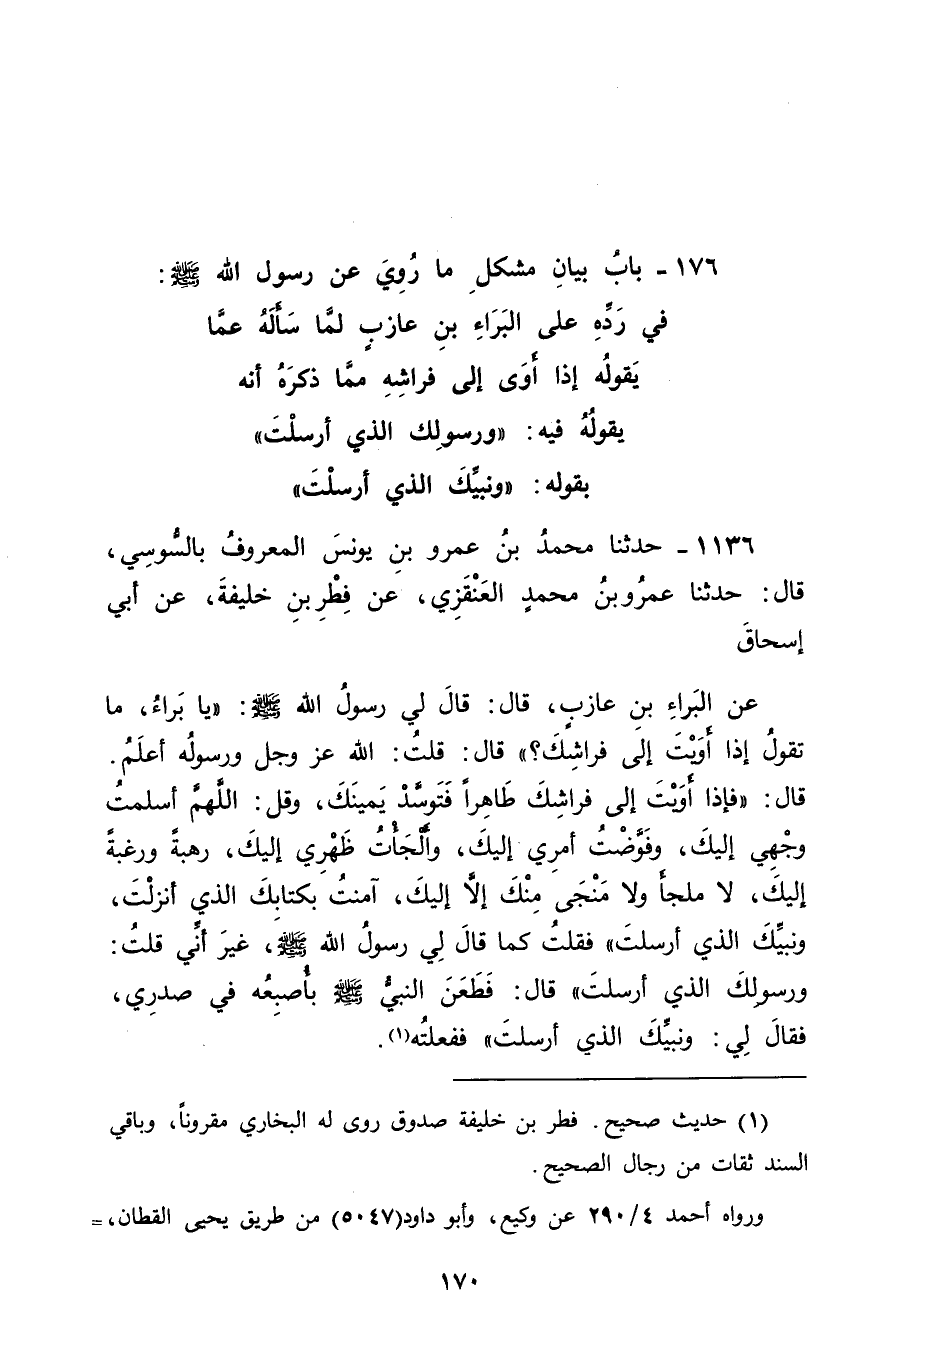 ١٧٦ - بابُ بيانِ مشكلِ ما رُوِيَ عن رسول الله ﷺ:
في رَدِّهِ على البَرَاءِ بنِ عازبٍ لمَّا سَأَلَهُ عمَّا
يَقولُه إذا أَوَى إلى فراشِهِ ممَّا ذكرَهُ أنه
يقولُهُ فيه: «ورسولِك الذي أرسلْتَ»
بقوله: «ونبيِّكَ الذي أرسلْتَ»
١١٣٦ - حدثنا محمدُ بنُ عمرو بنِ يونسَ المعروفُ بالسُّوسِي،
قال: حدثنا عمرُو بنُ محمدٍ العَنْقَزِي، عن فِطْرِ بنِ خليفةَ، عن أبي
إسحاقَ
عن البَراءِ بنِ عازبٍ، قال: قالَ لي رسولُ الله ﷺ: «يا بَراءُ، ما
تقولُ إذا أَوَيْتَ إلى فراشِكَ؟» قال: قلتُ: الله عز وجل ورسولُه أعلَمُ.
قال: «فإذا أَوَيْتَ إلى فراشِكَ طَاهِراً فَتَوسَّدْ يَمينَكَ، وقل: اللَّهمَّ أسلمتُ
وجْهِي إليكَ، وفَوَّضْتُ أمرِي إليكَ، وأَلْجَأْتُ ظَهْرِي إليكَ، رهبةً ورغبةً
إليكَ، لا ملجأَ ولا مَنْجَى مِنْكَ إلَّا إليكَ، آمنتُ بكتابكَ الذي أنزلْتَ،
ونبيِّكَ الذي أرسلتَ» فقلتُ كما قالَ لِي رسولُ الله ﷺ، غيرَ أنِّي قلتُ:
ورسولِكَ الذي أرسلتَ» قال: فَطَعَنَ النبيُّ ﷺ بأُصبعُه في صدرِي،
فقالَ لِي: ونبيِّكَ الذي أرسلتَ» ففعلتُه(١).
(١) حديث صحيح. فطر بن خليفة صدوق روى له البخاري مقروناً، وباقي
السند ثقات من رجال الصحيح.
ورواه أحمد ٢٩٠/٤ عن وكيع، وأبو داود(٥٠٤٧) من طريق يحيى القطان، =
١٧٠